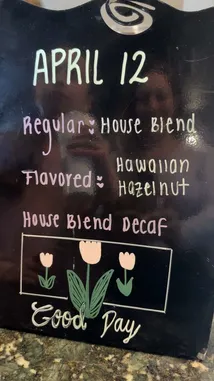 APRIL 12
Regular: House Blend
Flavored: Hawaiian Hazelnut
House Blend Decaf
Good Day